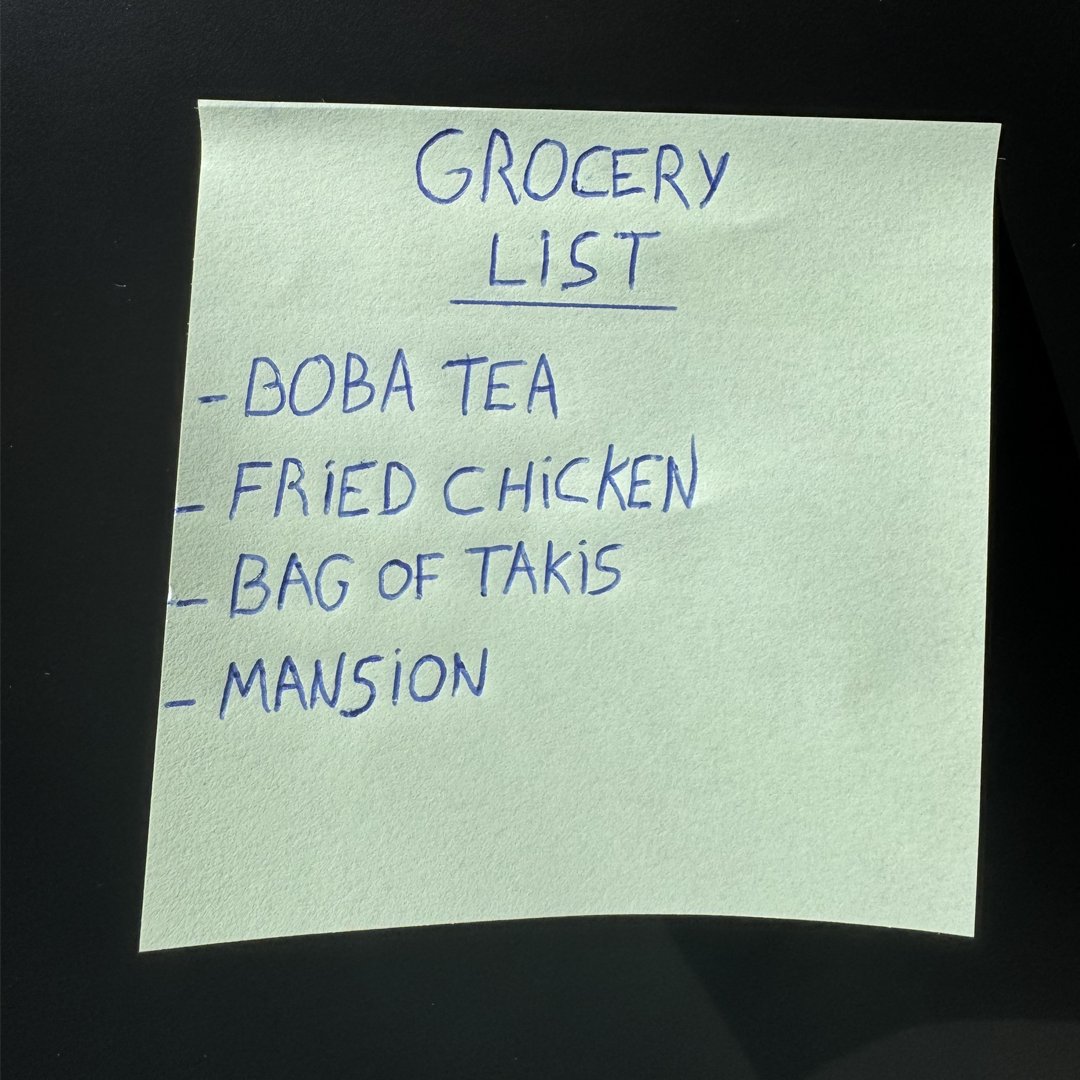 GROCERY
LIST
- BOBA TEA
- FRIED CHICKEN
- BAG OF TAKIS
- MANSION